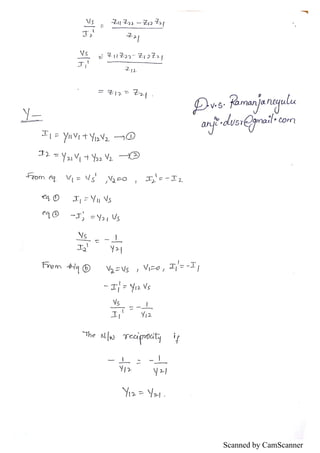 Vs / I2' = Z11 Z22 - Z12 Z21 / Z21
Vs / I1' = Z11 Z22 - Z12 Z21 / Z12
= Z12 = Z21.
D.v.s. Ramanjaneyulu
anji.dvsr@gmail.com
Y-
I1 = Y11 V1 + Y12 V2 → ①
I2 = Y21 V1 + Y22 V2 → ②
From eq V1 = Vs', V2=0 , I2' = - I2
eq ① I1 = Y11 Vs
eq ② -I2' = Y21 Vs
Vs / I2' = - 1 / Y21
From fig ⓑ V2=Vs , V1=0, I1' = -I1
- I1' = Y12 Vs
Vs / I1' = - 1 / Y12
The N/W reciprocity if
- 1 / Y12 = - 1 / Y21
Y12 = Y21.
Scanned by CamScanner